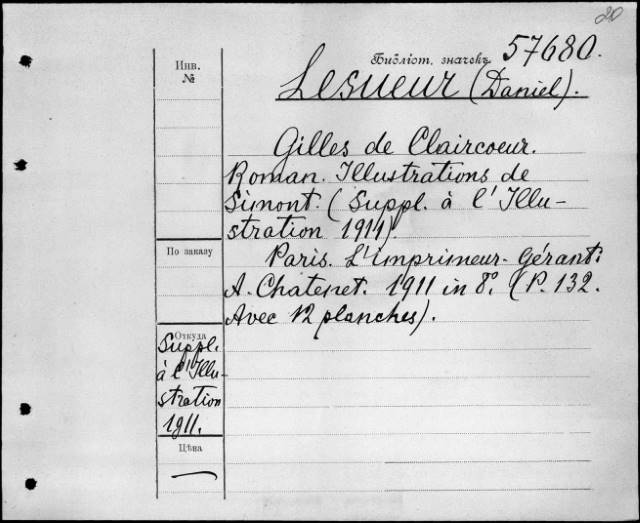 20
Библіот. значекъ 57680.
Инв.
№
Lesueur (Daniel).
Gilles de Claircoeur.
Roman. Illustrations de
Simont. (Suppl. à l'Illu-
stration 1911).
По заказу
Paris. L'imprimeur-Gérant:
A. Chatenet. 1911 in 8°. (P. 132.
Avec 12 planches).
Откуда
Suppl.
à l'Illu-
stration
1911.
Цѣна
—